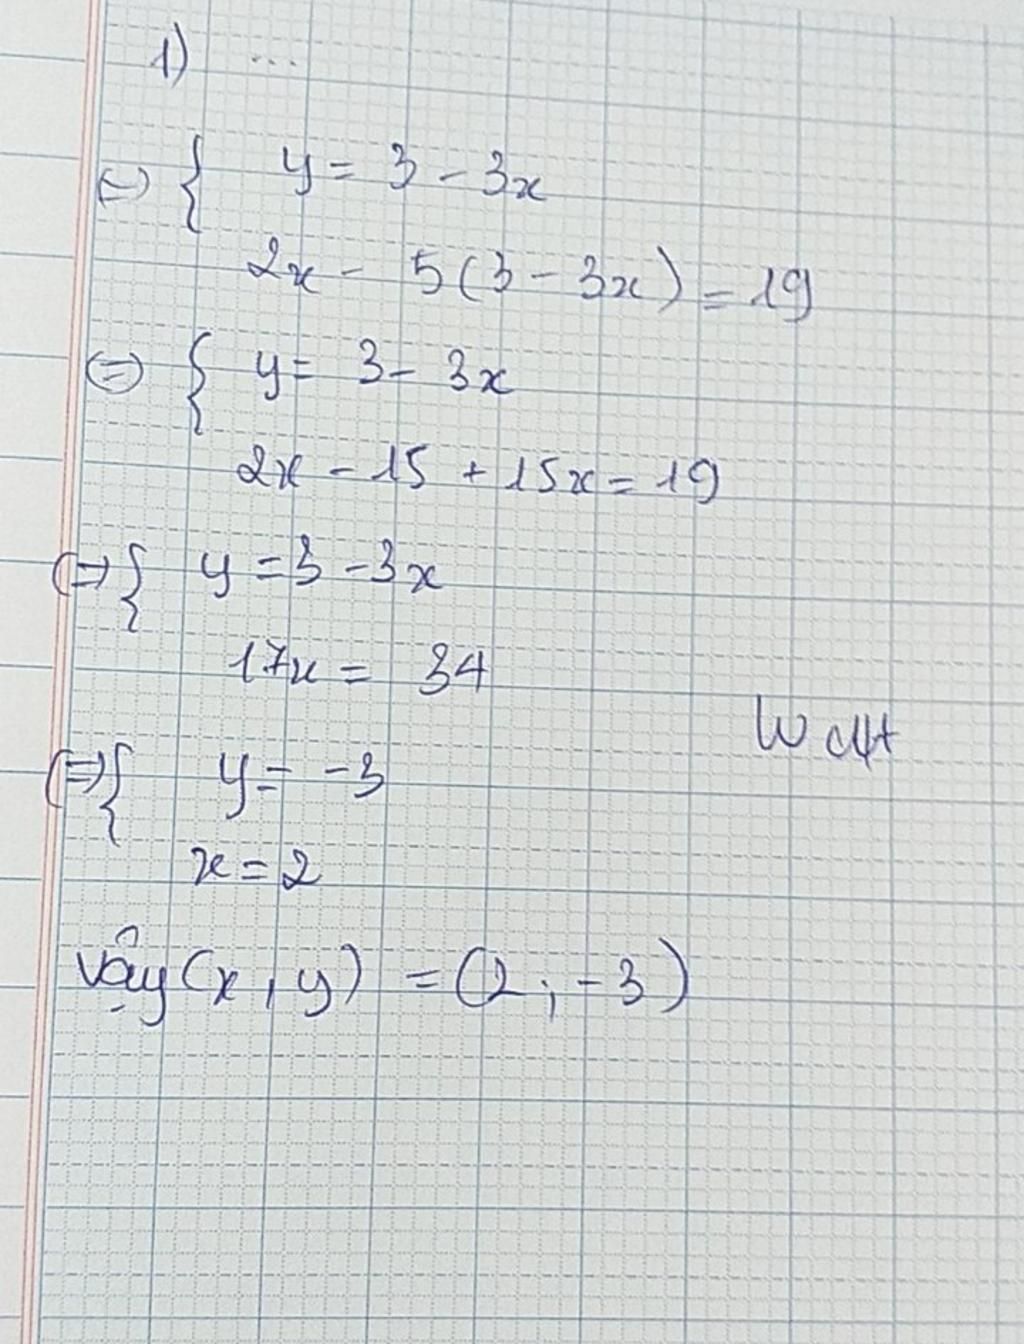 1) ...
⇔ { y = 3 - 3x
2x - 5(3 - 3x) = 19
⇔ { y = 3 - 3x
2x - 15 + 15x = 19
⇔ { y = 3 - 3x
17x = 34
⇔ { y = -3
x = 2
Vậy (x, y) = (2; -3)